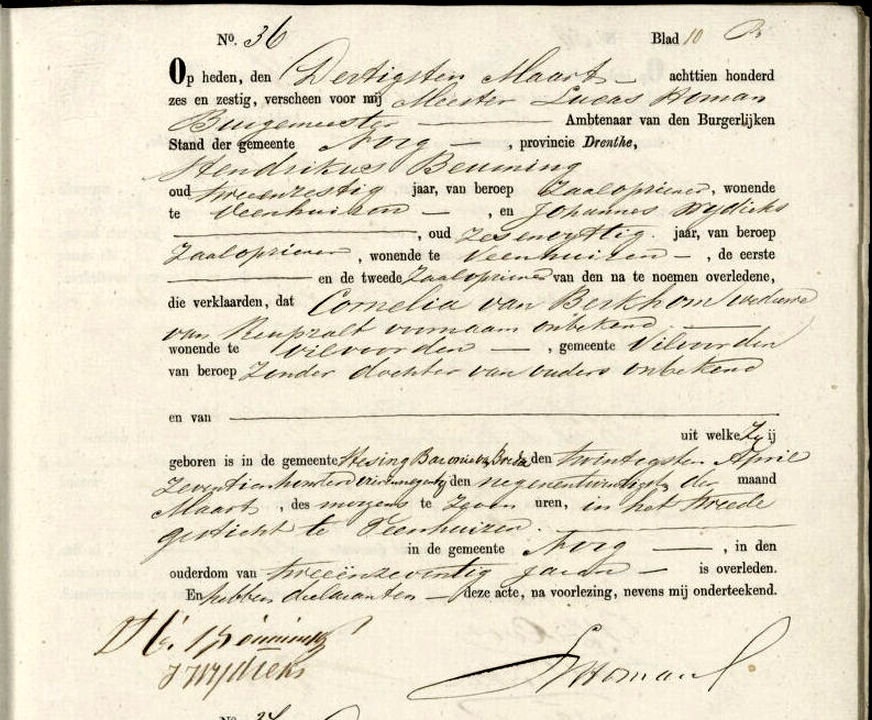 No. 36 Blad 10
Op heden, den Dertigsten Maart achttien honderd
zes en zestig, verscheen voor mij Meester Lucas Homan
Burgemeester Ambtenaar van den Burgerlijken
Stand der gemeente Norg, provincie Drenthe,
Hendrikus Beuning
oud tweeenzestig jaar, van beroep Zaalopziener, wonende
te Veenhuizen, en Johannes Wydieks
, oud zesenvyftig jaar, van beroep
Zaalopziener, wonende te Veenhuizen, de eerste
en de tweede Zaalopziener van den na te noemen overledene,
die verklaarden, dat Cornelia van Berkhom weduwe
van voornaam onbekend
wonende te Vilvoorden, gemeente Vilvoorden
van beroep Zonder dochter van ouders onbekend
en van
uit welke Zy ij
geboren is in de gemeente Baronie Breda den twintigsten April
Zeventienhonderd vierennegentig den negenentwintigsten der maand
Maart, des morgens te Zeven uren, in het tweede
gesticht te Veenhuizen.
in de gemeente Norg, in den
ouderdom van tweeënzeventig jaren is overleden.
En hebben declaranten deze acte, na voorlezing, nevens mij onderteekend.
J Wydieks
L Homan
No.